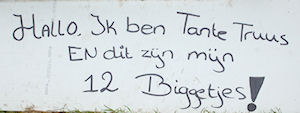 HALLO. IK ben Tante Truus
EN dit zijn mijn
12 Biggetjes!